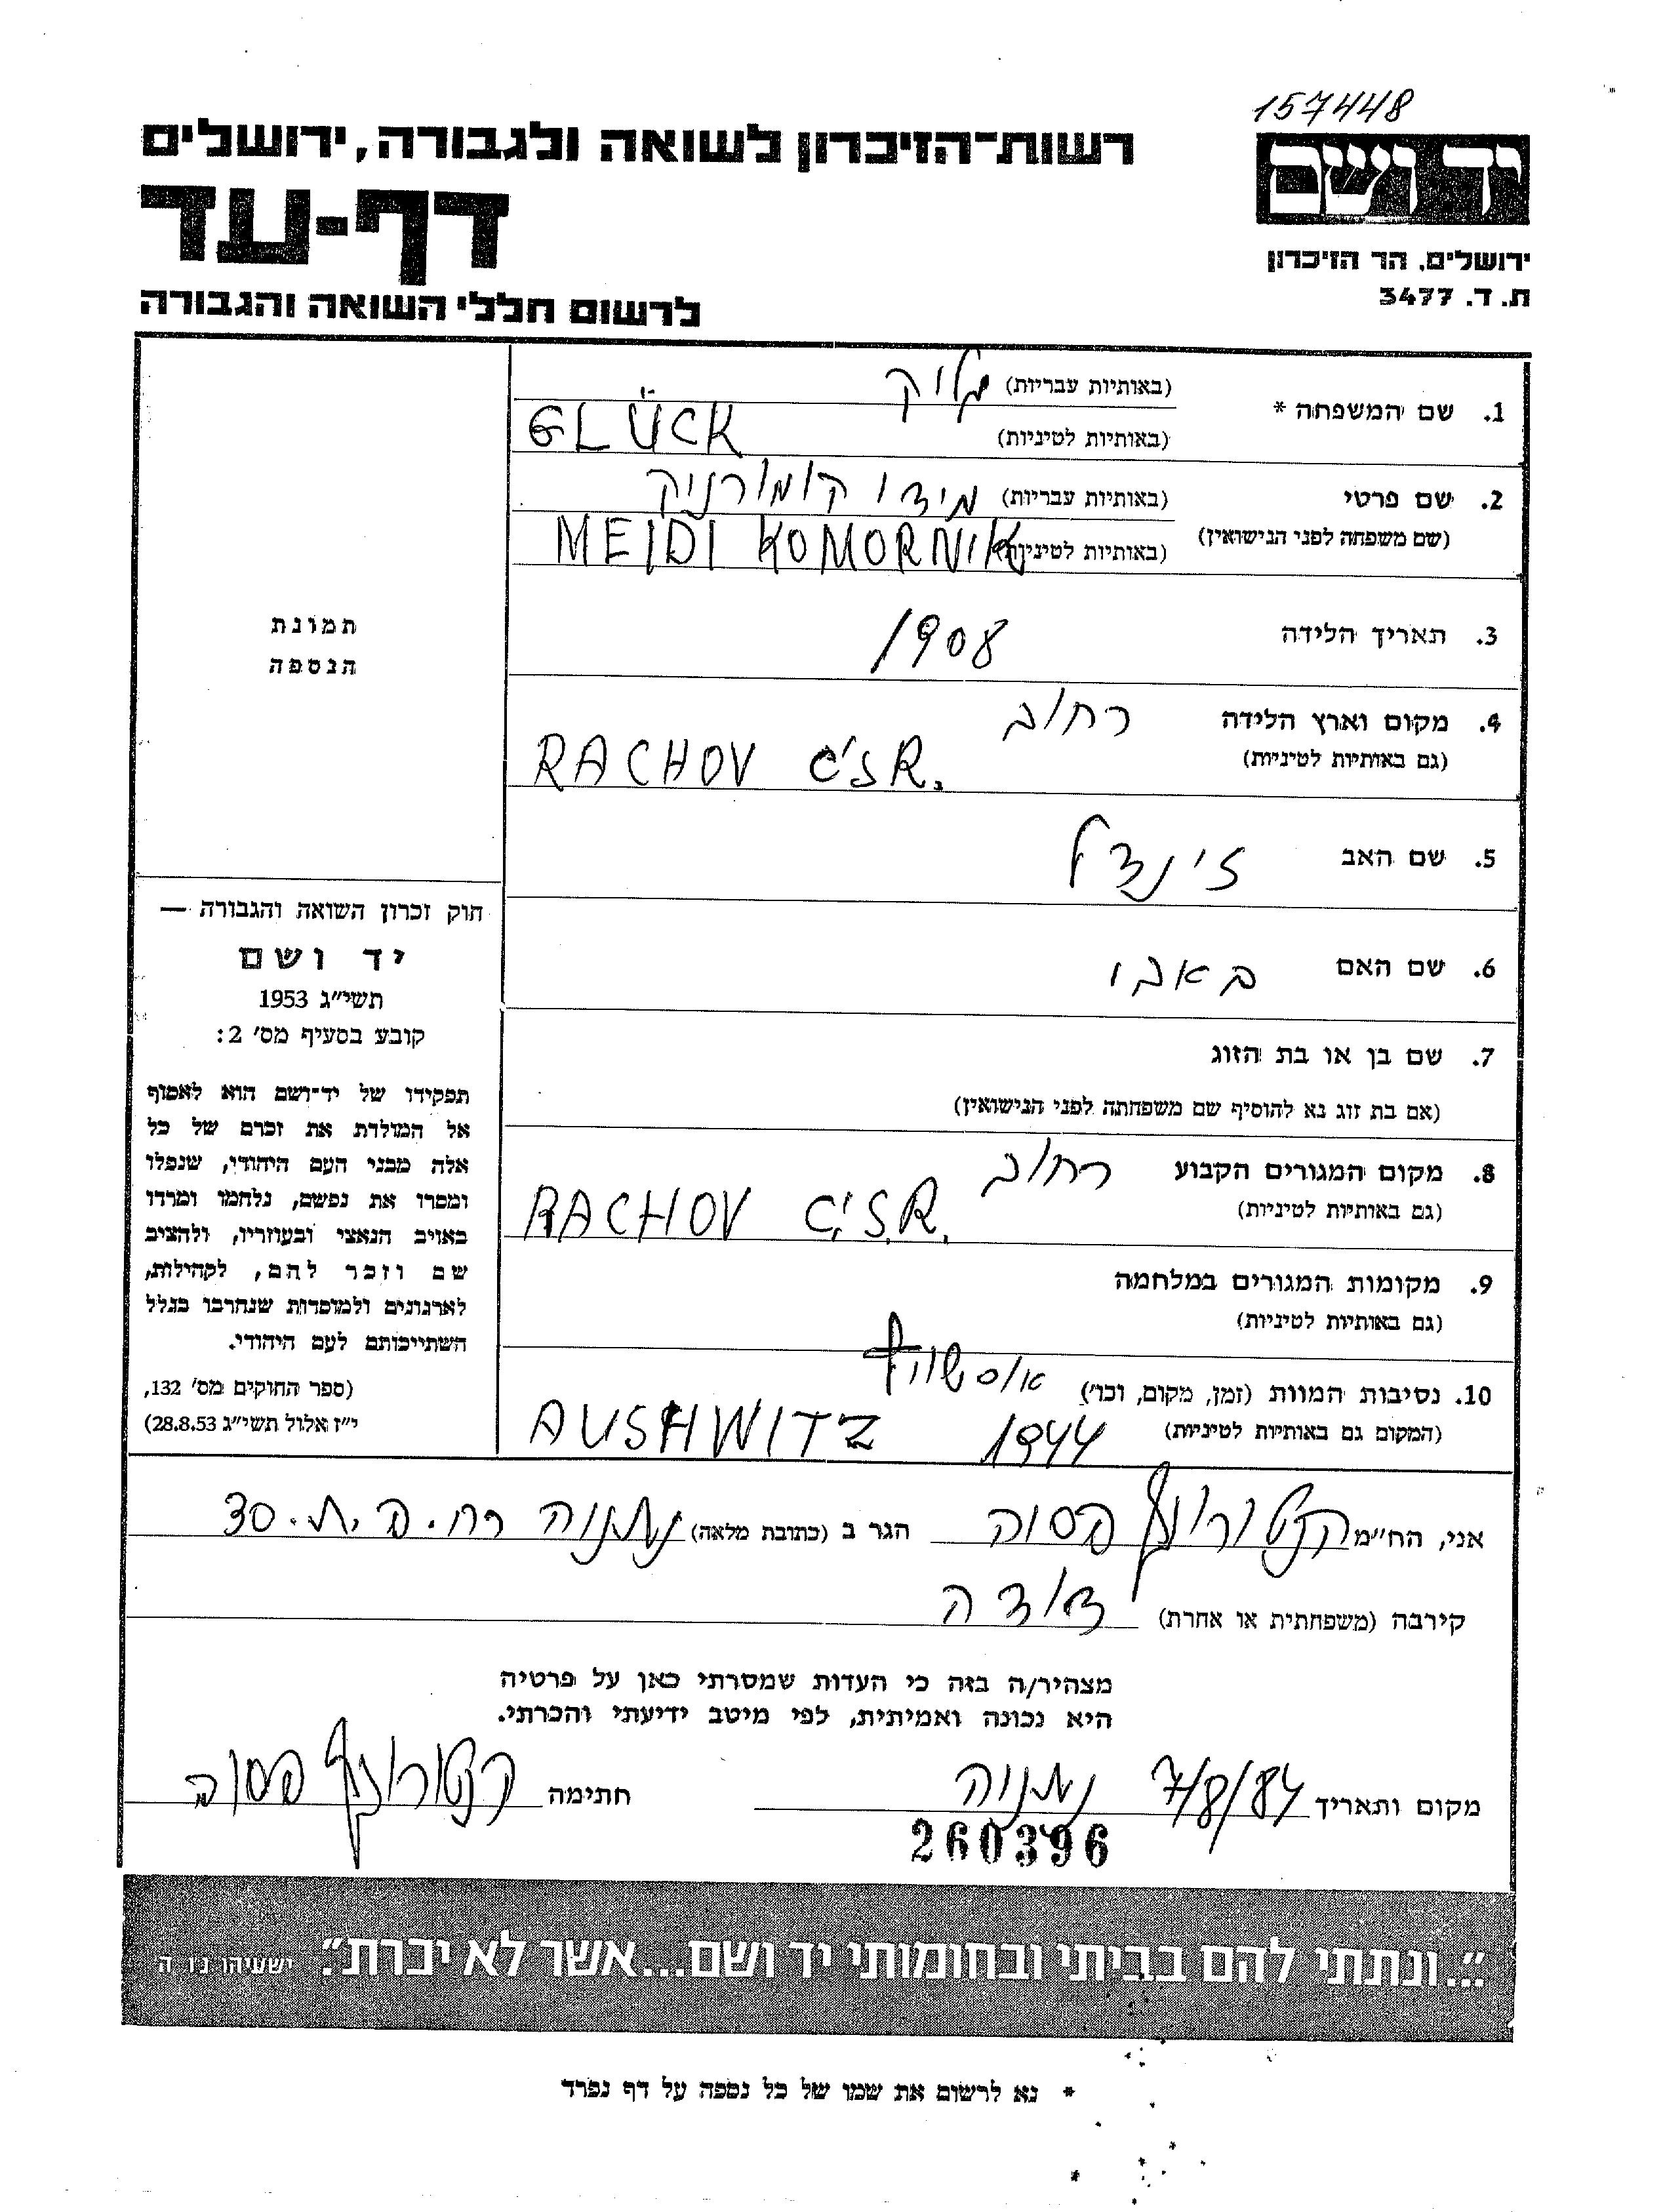 157448
יד ושם
רשות־הזיכרון לשואה ולגבורה, ירושלים
דף-עד
לרשום חללי השואה והגבורה
ירושלים, הר הזיכרון
ת. ד. 3477
1. שם המשפחה * (באותיות עבריות) גליק
(באותיות לטיניות) GLÜCK
2. שם פרטי (באותיות עבריות) מידי קומורניק
(שם משפחה לפני הנישואין) (באותיות לטיניות) MEIDI KOMORNIK
3. תאריך הלידה 1908
4. מקום וארץ הלידה רחוב
(גם באותיות לטיניות) RACHOV C'S R.
5. שם האב זינדל
6. שם האם באבי
7. שם בן או בת הזוג
(אם בת זוג נא להוסיף שם משפחתה לפני הנישואין)
8. מקום המגורים הקבוע רחוב
(גם באותיות לטיניות) RACHOV C'.S.R.
9. מקומות המגורים במלחמה
(גם באותיות לטיניות)
10. נסיבות המוות (זמן, מקום, וכו') אושוויץ
(המקום גם באותיות לטיניות) 1944 AUSHWITZ
תמונת
הנספה
חוק זכרון השואה והגבורה —
יד ושם
תשי״ג 1953
קובע בסעיף מס׳ 2:
תפקידו של יד־ושם הוא לאסוף
אל המולדת את זכרם של כל
אלה מבני העם היהודי, שנפלו
ומסרו את נפשם, נלחמו ומרדו
באויב הנאצי ובעוזריו, ולהציב
שם וזכר להם, לקהילות,
לארגונים ולמוסדות שנחרבו בגלל
השתייכותם לעם היהודי.
(ספר החוקים מס׳ 132,
י״ז אלול תשי״ג 28.8.53)
אני, הח״מ בסוה הגר ב (כתובת מלאה) נתניה רח. פ.ת. 30
קירבה (משפחתית או אחרת) דודה
מצהיר/ה בזה כי העדות שמסרתי כאן על פרטיה
היא נכונה ואמיתית, לפי מיטב ידיעתי והכרתי.
מקום ותאריך 7/8/84 נתניה חתימה
260396
״...ונתתי להם בביתי ובחומותי יד ושם...אשר לא יכרת״. ישעיהו נ״ו ה
* נא לרשום את שמו של כל נספה על דף נפרד